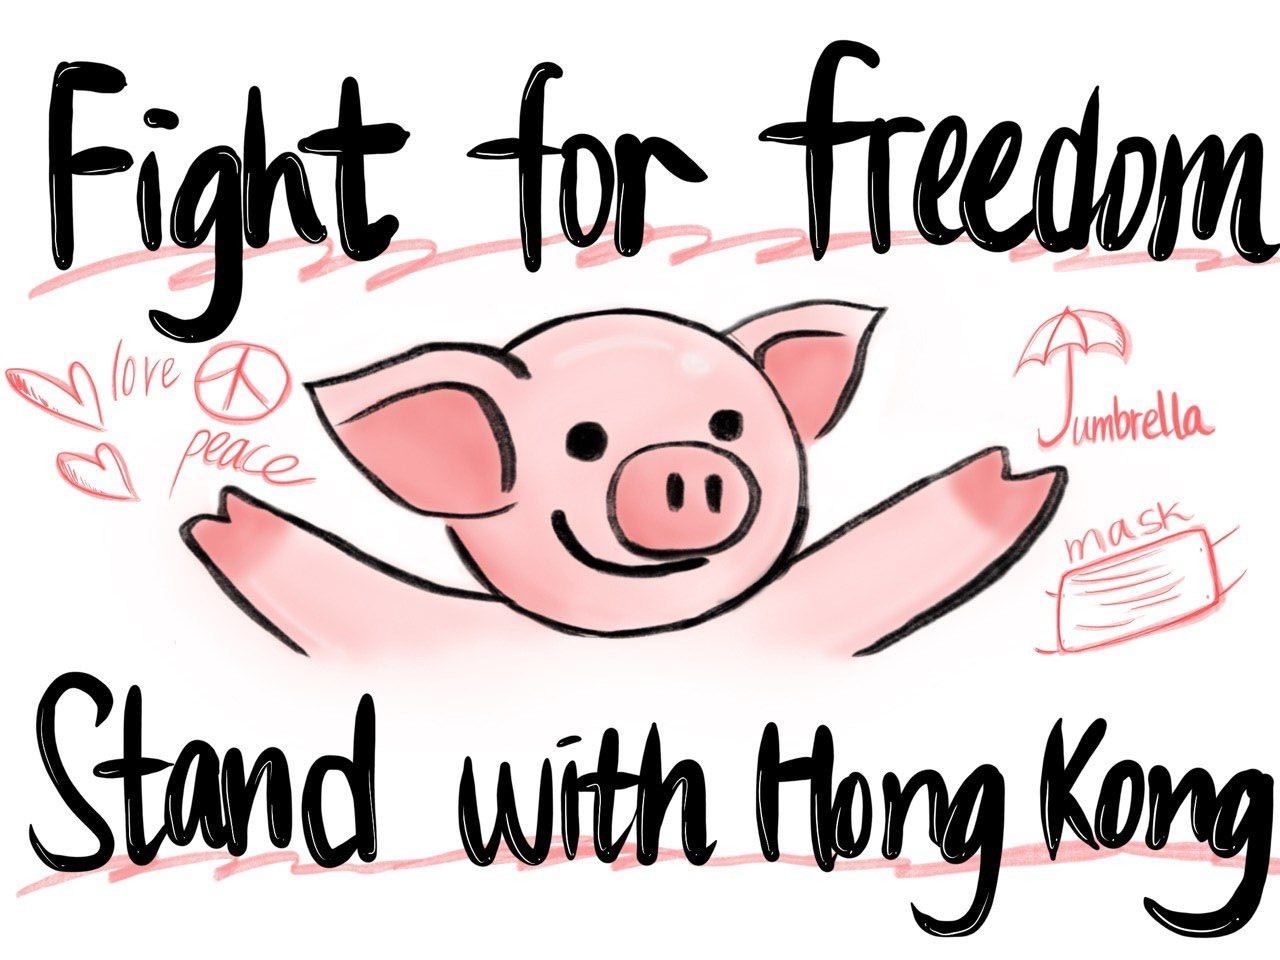 Fight for freedom
love
peace
umbrella
mask
Stand with Hong Kong